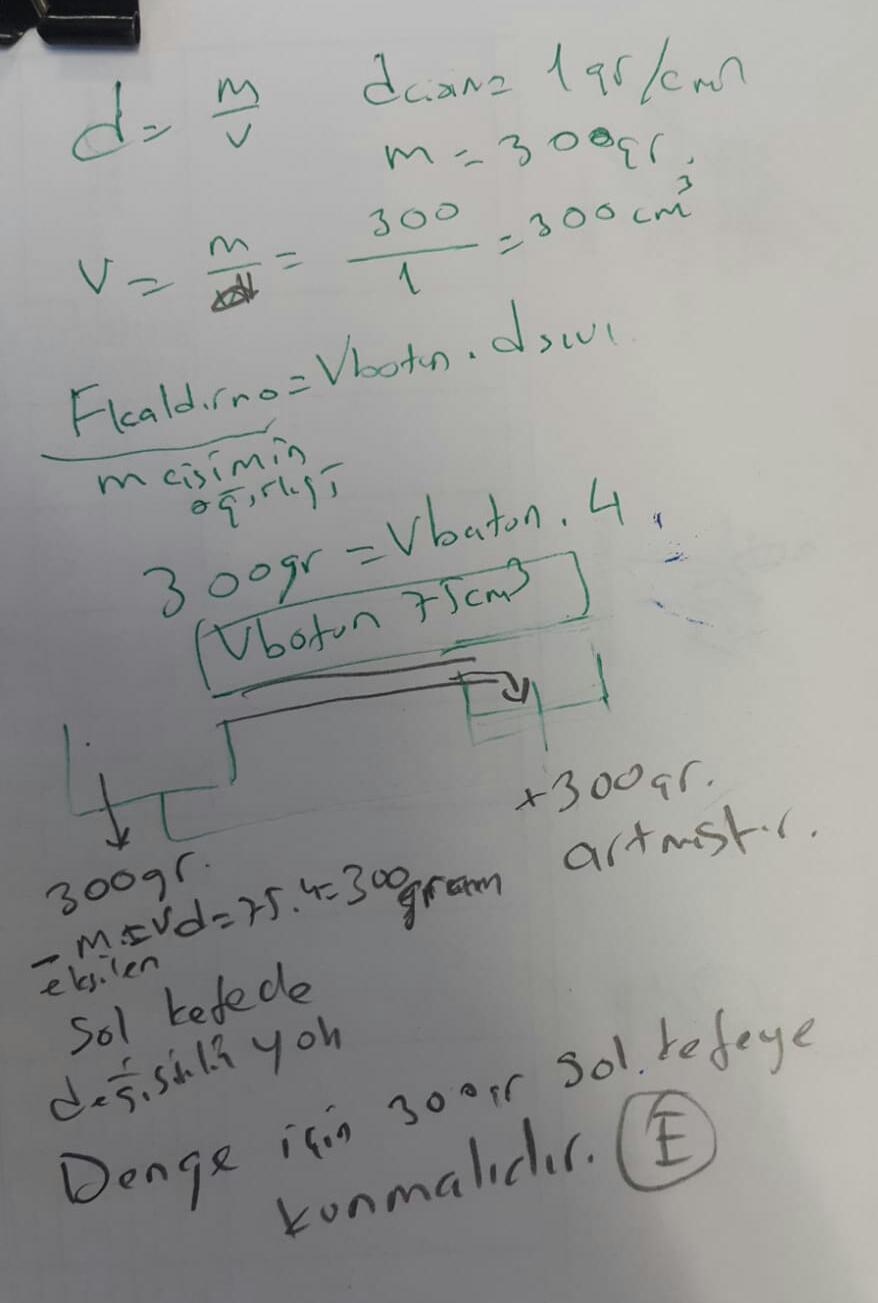 d = m/v dcisim = 1 gr/cm
m = 300gr.
V = m/d = 300/1 = 300 cm³
Fkaldırma = Vbatan . dsıvı
m cisimin
ağırlığı
300gr = Vbatan . 4
Vbatan 75cm³
+300gr.
artmıştır.
300gr.
- m = Vd = 75.4 = 300 gram
eksilen
Sol kefede
değişiklik yok
Denge için 300gr sol kefeye
konmalıdır. E